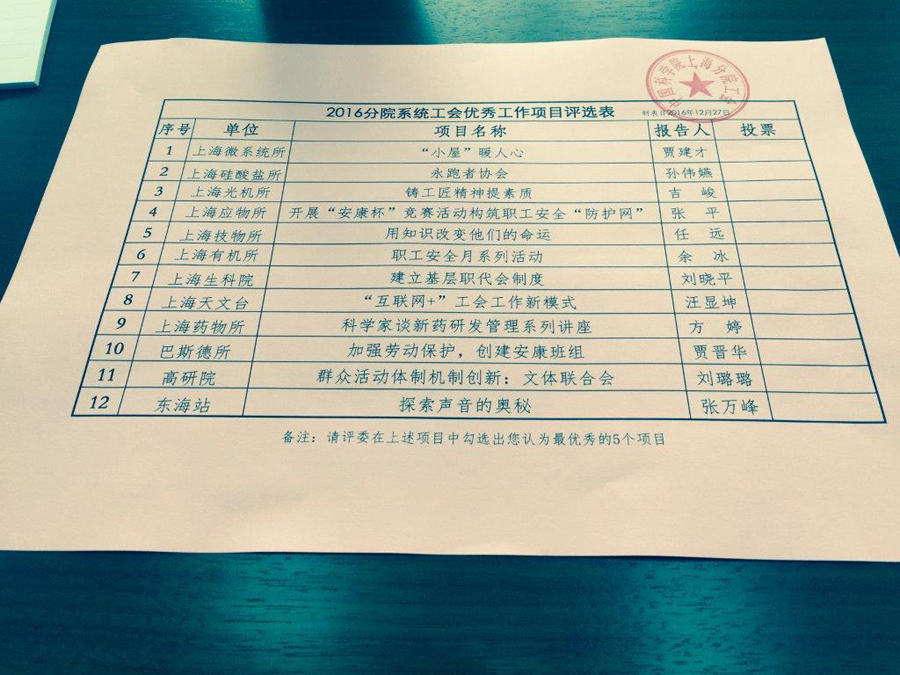 中国科学院上海分院工会
2016分院系统工会优秀工作项目评选表
制表日2016年12月27日
序号 单位 项目名称 报告人 投票
1 上海微系统所 “小屋”暖人心 贾建才
2 上海硅酸盐所 永跑者协会 孙伟嬿
3 上海光机所 铸工匠精神提素质 吉 峻
4 上海应物所 开展“安康杯”竞赛活动构筑职工安全“防护网” 张 平
5 上海技物所 用知识改变他们的命运 任 远
6 上海有机所 职工安全月系列活动 余 冰
7 上海生科院 建立基层职代会制度 刘晓平
8 上海天文台 “互联网+”工会工作新模式 汪显坤
9 上海药物所 科学家谈新药研发管理系列讲座 方 婷
10 巴斯德所 加强劳动保护，创建安康班组 贾晋华
11 高研院 群众活动体制机制创新：文体联合会 刘璐璐
12 东海站 探索声音的奥秘 张万峰
备注：请评委在上述项目中勾选出您认为最优秀的5个项目